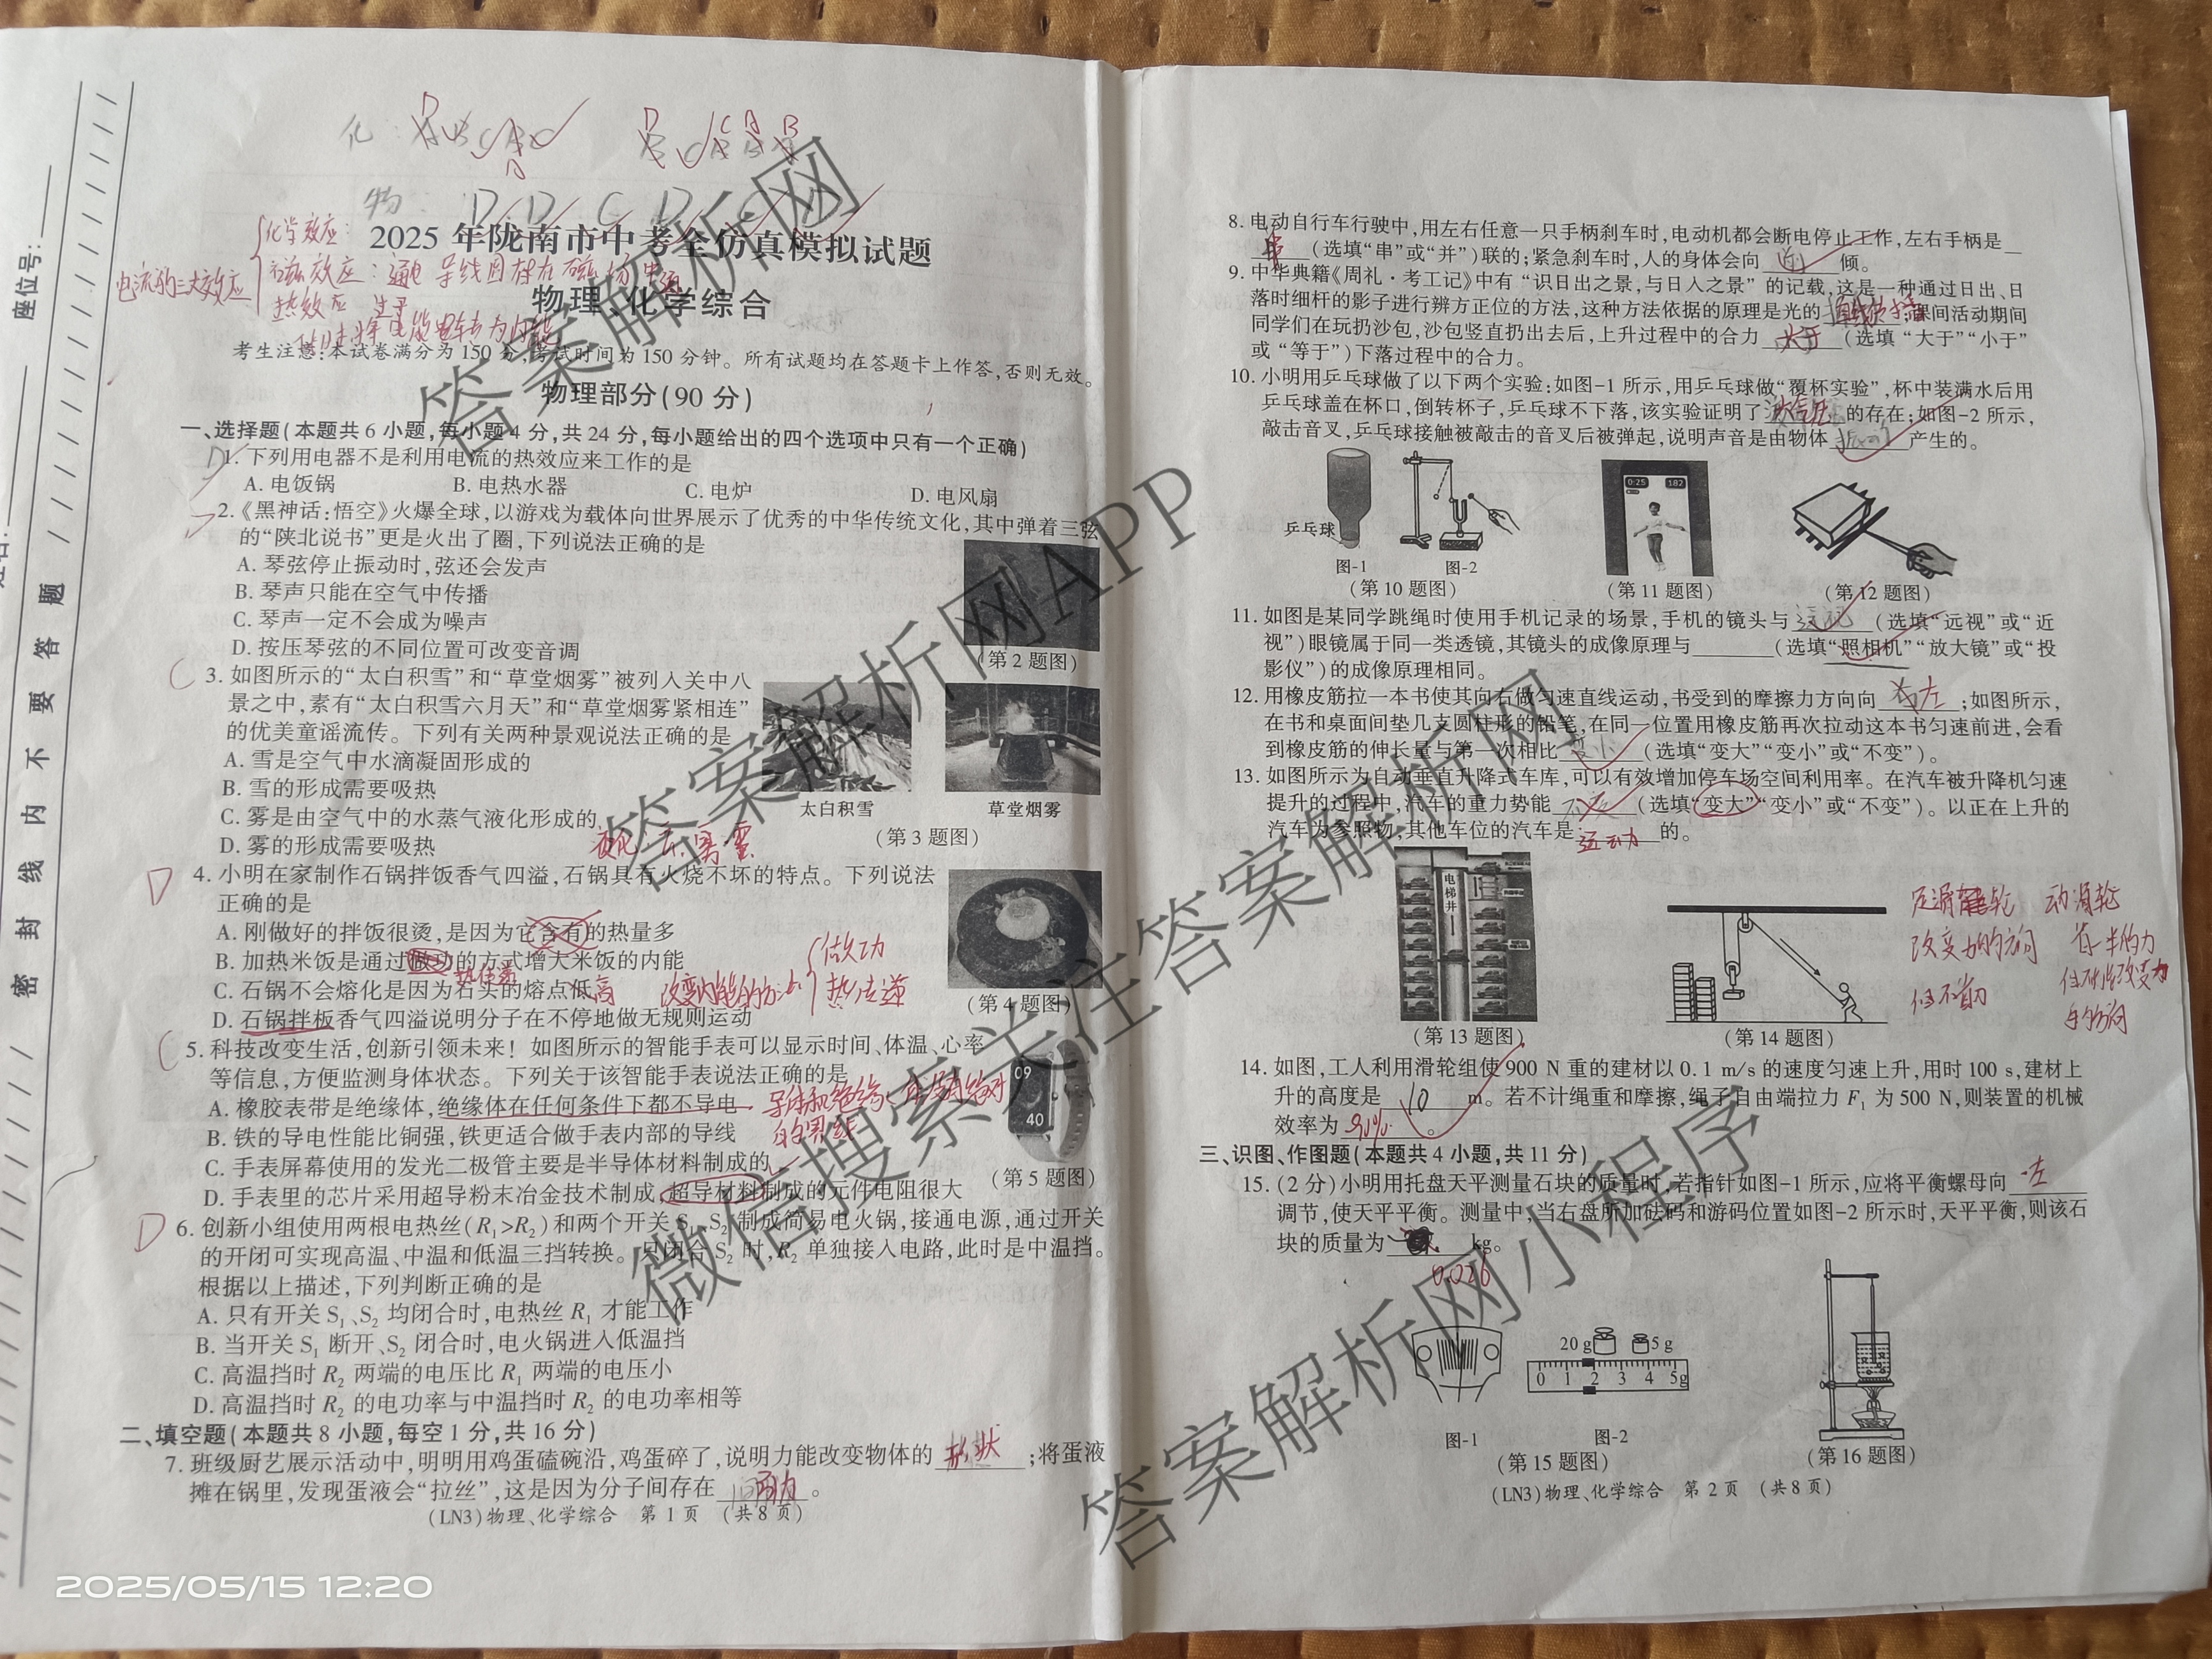 座位号:
密 封 线 内 不 要 答 题
2025 年陇南市中考全仿真模拟试题
物理、化学综合
考生注意:本试卷满分为 150 分,考试时间为 150 分钟。所有试题均在答题卡上作答,否则无效。
物理部分(90 分)
一、选择题(本题共 6 小题,每小题 4 分,共 24 分,每小题给出的四个选项中只有一个正确)
D
1. 下列用电器不是利用电流的热效应来工作的是
A. 电饭锅 B. 电热水器 C. 电炉 D. 电风扇
2.《黑神话:悟空》火爆全球,以游戏为载体向世界展示了优秀的中华传统文化,其中弹着三弦
的“陕北说书”更是火出了圈,下列说法正确的是
A. 琴弦停止振动时,弦还会发声
B. 琴声只能在空气中传播
C. 琴声一定不会成为噪声
D. 按压琴弦的不同位置可改变音调
(第 2 题图)
C
3. 如图所示的“太白积雪”和“草堂烟雾”被列入关中八
景之中,素有“太白积雪六月天”和“草堂烟雾紧相连”
的优美童谣流传。下列有关两种景观说法正确的是
A. 雪是空气中水滴凝固形成的
B. 雪的形成需要吸热
C. 雾是由空气中的水蒸气液化形成的
D. 雾的形成需要吸热
太白积雪 草堂烟雾
(第 3 题图)
D
4. 小明在家制作石锅拌饭香气四溢,石锅具有火烧不坏的特点。下列说法
正确的是
A. 刚做好的拌饭很烫,是因为它含有的热量多
B. 加热米饭是通过做功的方式增大米饭的内能
热传递
C. 石锅不会熔化是因为石头的熔点低 高
D. 石锅拌板香气四溢说明分子在不停地做无规则运动
做功
热传递
(第 4 题图)
C
5. 科技改变生活,创新引领未来!如图所示的智能手表可以显示时间、体温、心率
等信息,方便监测身体状态。下列关于该智能手表说法正确的是
A. 橡胶表带是绝缘体,绝缘体在任何条件下都不导电
B. 铁的导电性能比铜强,铁更适合做手表内部的导线
C. 手表屏幕使用的发光二极管主要是半导体材料制成的
D. 手表里的芯片采用超导粉末冶金技术制成,超导材料制成的元件电阻很大
09
40
(第 5 题图)
D
6. 创新小组使用两根电热丝(R₁>R₂)和两个开关 S₁、S₂ 制成简易电火锅,接通电源,通过开关
的开闭可实现高温、中温和低温三挡转换。只闭合 S₂ 时,R₂ 单独接入电路,此时是中温挡。
根据以上描述,下列判断正确的是
A. 只有开关 S₁、S₂ 均闭合时,电热丝 R₁ 才能工作
B. 当开关 S₁ 断开、S₂ 闭合时,电火锅进入低温挡
C. 高温挡时 R₂ 两端的电压比 R₁ 两端的电压小
D. 高温挡时 R₂ 的电功率与中温挡时 R₂ 的电功率相等
二、填空题(本题共 8 小题,每空 1 分,共 16 分)
7. 班级厨艺展示活动中,明明用鸡蛋磕碗沿,鸡蛋碎了,说明力能改变物体的 形状 ;将蛋液
摊在锅里,发现蛋液会“拉丝”,这是因为分子间存在 引力 。
(LN3)物理、化学综合 第 1 页 (共 8 页)
2025/05/15 12:20
8. 电动自行车行驶中,用左右任意一只手柄刹车时,电动机都会断电停止工作,左右手柄是
串 (选填“串”或“并”)联的;紧急刹车时,人的身体会向 前 倾。
9. 中华典籍《周礼·考工记》中有“识日出之景,与日入之景”的记载,这是一种通过日出、日
落时细杆的影子进行辨方正位的方法,这种方法依据的原理是光的 直线传播 课间活动期间
同学们在玩扔沙包,沙包竖直扔出去后,上升过程中的合力 大于 (选填“大于”“小于”
或“等于”)下落过程中的合力。
10. 小明用乒乓球做了以下两个实验:如图-1 所示,用乒乓球做“覆杯实验”,杯中装满水后用
乒乓球盖在杯口,倒转杯子,乒乓球不下落,该实验证明了 大气压 的存在;如图-2 所示,
敲击音叉,乒乓球接触被敲击的音叉后被弹起,说明声音是由物体 振动 产生的。
乒乓球
图-1 图-2
0:25 182
(第 10 题图) (第 11 题图) (第 12 题图)
11. 如图是某同学跳绳时使用手机记录的场景,手机的镜头与 远视 (选填“远视”或“近
视”)眼镜属于同一类透镜,其镜头的成像原理与 (选填“照相机”“放大镜”或“投
影仪”)的成像原理相同。
12. 用橡皮筋拉一本书使其向右做匀速直线运动,书受到的摩擦力方向向 左 ;如图所示,
在书和桌面间垫几支圆柱形的铅笔,在同一位置用橡皮筋再次拉动这本书匀速前进,会看
到橡皮筋的伸长量与第一次相比 变小 (选填“变大”“变小”或“不变”)。
13. 如图所示为自动垂直升降式车库,可以有效增加停车场空间利用率。在汽车被升降机匀速
提升的过程中,汽车的重力势能 不变 (选填“变大”“变小”或“不变”)。以正在上升的
汽车为参照物,其他车位的汽车是 运动 的。
电梯井
(第 13 题图) (第 14 题图)
定滑轮 动滑轮
改变力的方向 省一半的力
但不省力
14. 如图,工人利用滑轮组使 900 N 重的建材以 0.1 m/s 的速度匀速上升,用时 100 s,建材上
升的高度是 10 m。若不计绳重和摩擦,绳子自由端拉力 F₁ 为 500 N,则装置的机械
效率为 90% 。
三、识图、作图题(本题共 4 小题,共 11 分)
15. (2 分)小明用托盘天平测量石块的质量时,若指针如图-1 所示,应将平衡螺母向 左
调节,使天平平衡。测量中,当右盘所加砝码和游码位置如图-2 所示时,天平平衡,则该石
块的质量为 kg。
0.026
20 g 5 g
0 1 2 3 4 5g
图-1 图-2
(第 15 题图) (第 16 题图)
(LN3)物理、化学综合 第 2 页 (共 8 页)
答案解析网
答案解析网APP
微信搜索关注答案解析网
答案解析网小程序